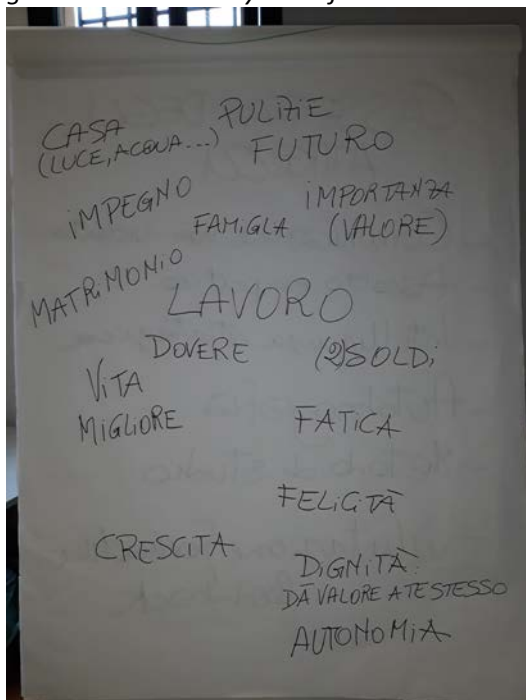 PULIZIE
CASA
(LUCE, ACQUA...)
FUTURO
IMPEGNO
IMPORTANZA
(VALORE)
FAMIGLA
MATRMONIO
LAVORO
DOVERE
(2) SOLDI
VITA
MIGLIORE
FATICA
FELICITÀ
CRESCITA
DIGNITÀ:
DÀ VALORE A TE STESSO
AUTONOMIA